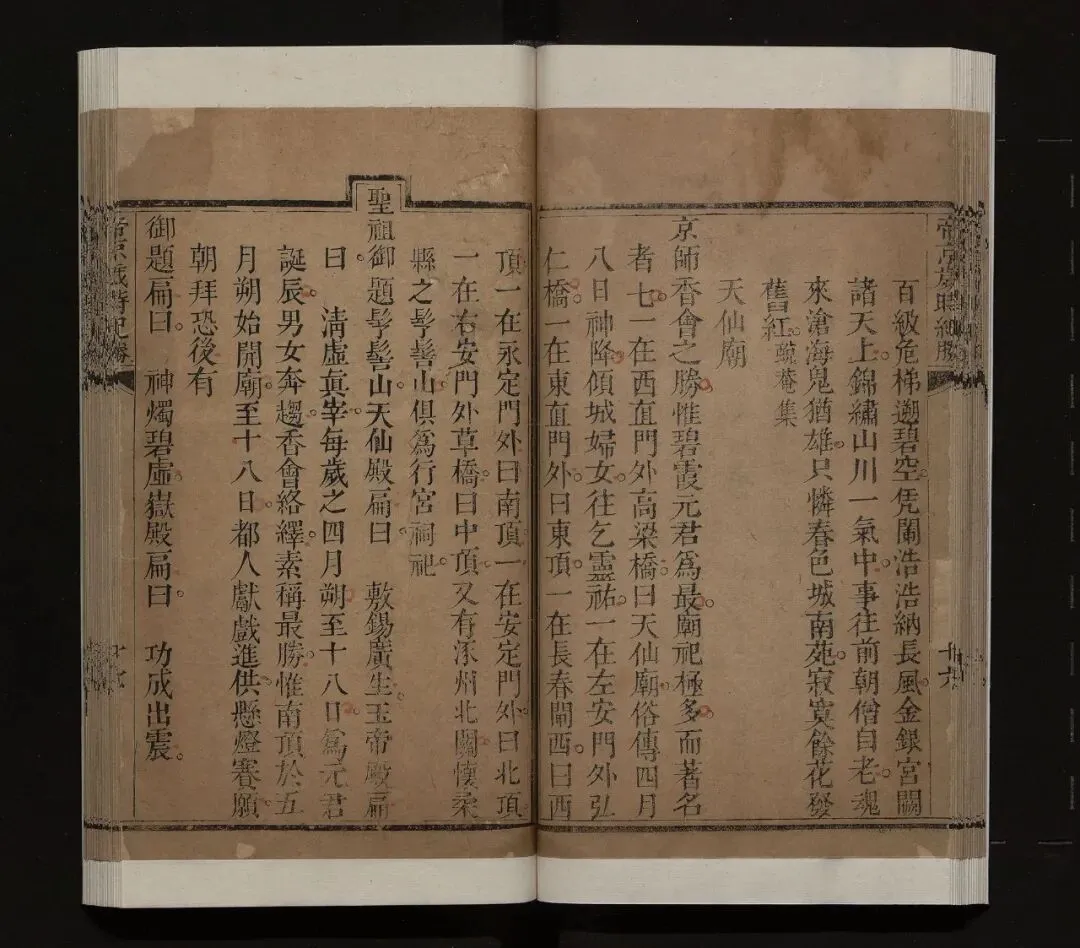 帝京歲時紀勝 十六
百級危梯遡碧空凭闌浩浩納長風金銀宮闕
諸天上錦繡山川一氣中事往前朝僧自老魂
來滄海鬼猶雄只憐春色城南苑寂寞餘花發
舊紅蔬菴集
天仙廟
京師香會之勝惟碧霞元君爲最廟祀極多而著名
者七一在西直門外高梁橋曰天仙廟俗傳四月
八日神降傾城婦女往乞靈祐一在左安門外弘
仁橋一在東直門外曰東頂一在長春閘西曰西
頂一在永定門外曰南頂一在安定門外曰北頂
一在右安門外草橋曰中頂又有涿州北關懷柔
縣之髫髻山俱爲行宮祠祀
聖祖御題髫髻山天仙殿扁曰 敷錫廣生玉帝殿扁
曰 清虛眞宰每歲之四月朔至十八日爲元君
誕辰男女奔趨香會絡繹素稱最勝惟南頂於五
月朔始開廟至十八日都人獻戲進供懸燈賽願
朝拜恐後有
御題扁曰 神燭碧虛嶽殿扁曰 功成出震
帝京歲時紀勝